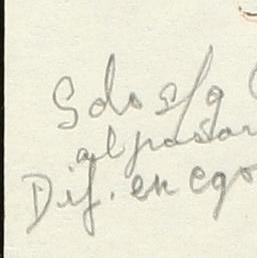 Sdo s/g
al pasar
Dif. en cgo